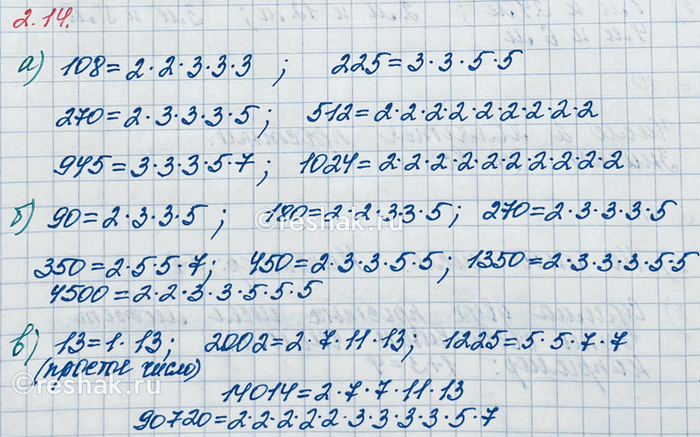 2.14.
а) 108=2·2·3·3·3 ; 225=3·3·5·5
270=2·3·3·3·5; 512=2·2·2·2·2·2·2·2·2
945=3·3·3·5·7; 1024=2·2·2·2·2·2·2·2·2·2
б) 90=2·3·3·5 ; 180=2·2·3·3·5; 270=2·3·3·3·5
©reshak.ru
350=2·5·5·7; 450=2·3·3·5·5; 1350=2·3·3·3·5·5
4500=2·2·3·3·5·5·5
в) 13=1·13; 2002=2·7·11·13; 1225=5·5·7·7
(простое число)
©reshak.ru
14014=2·7·7·11·13
90720=2·2·2·2·2·3·3·3·3·5·7